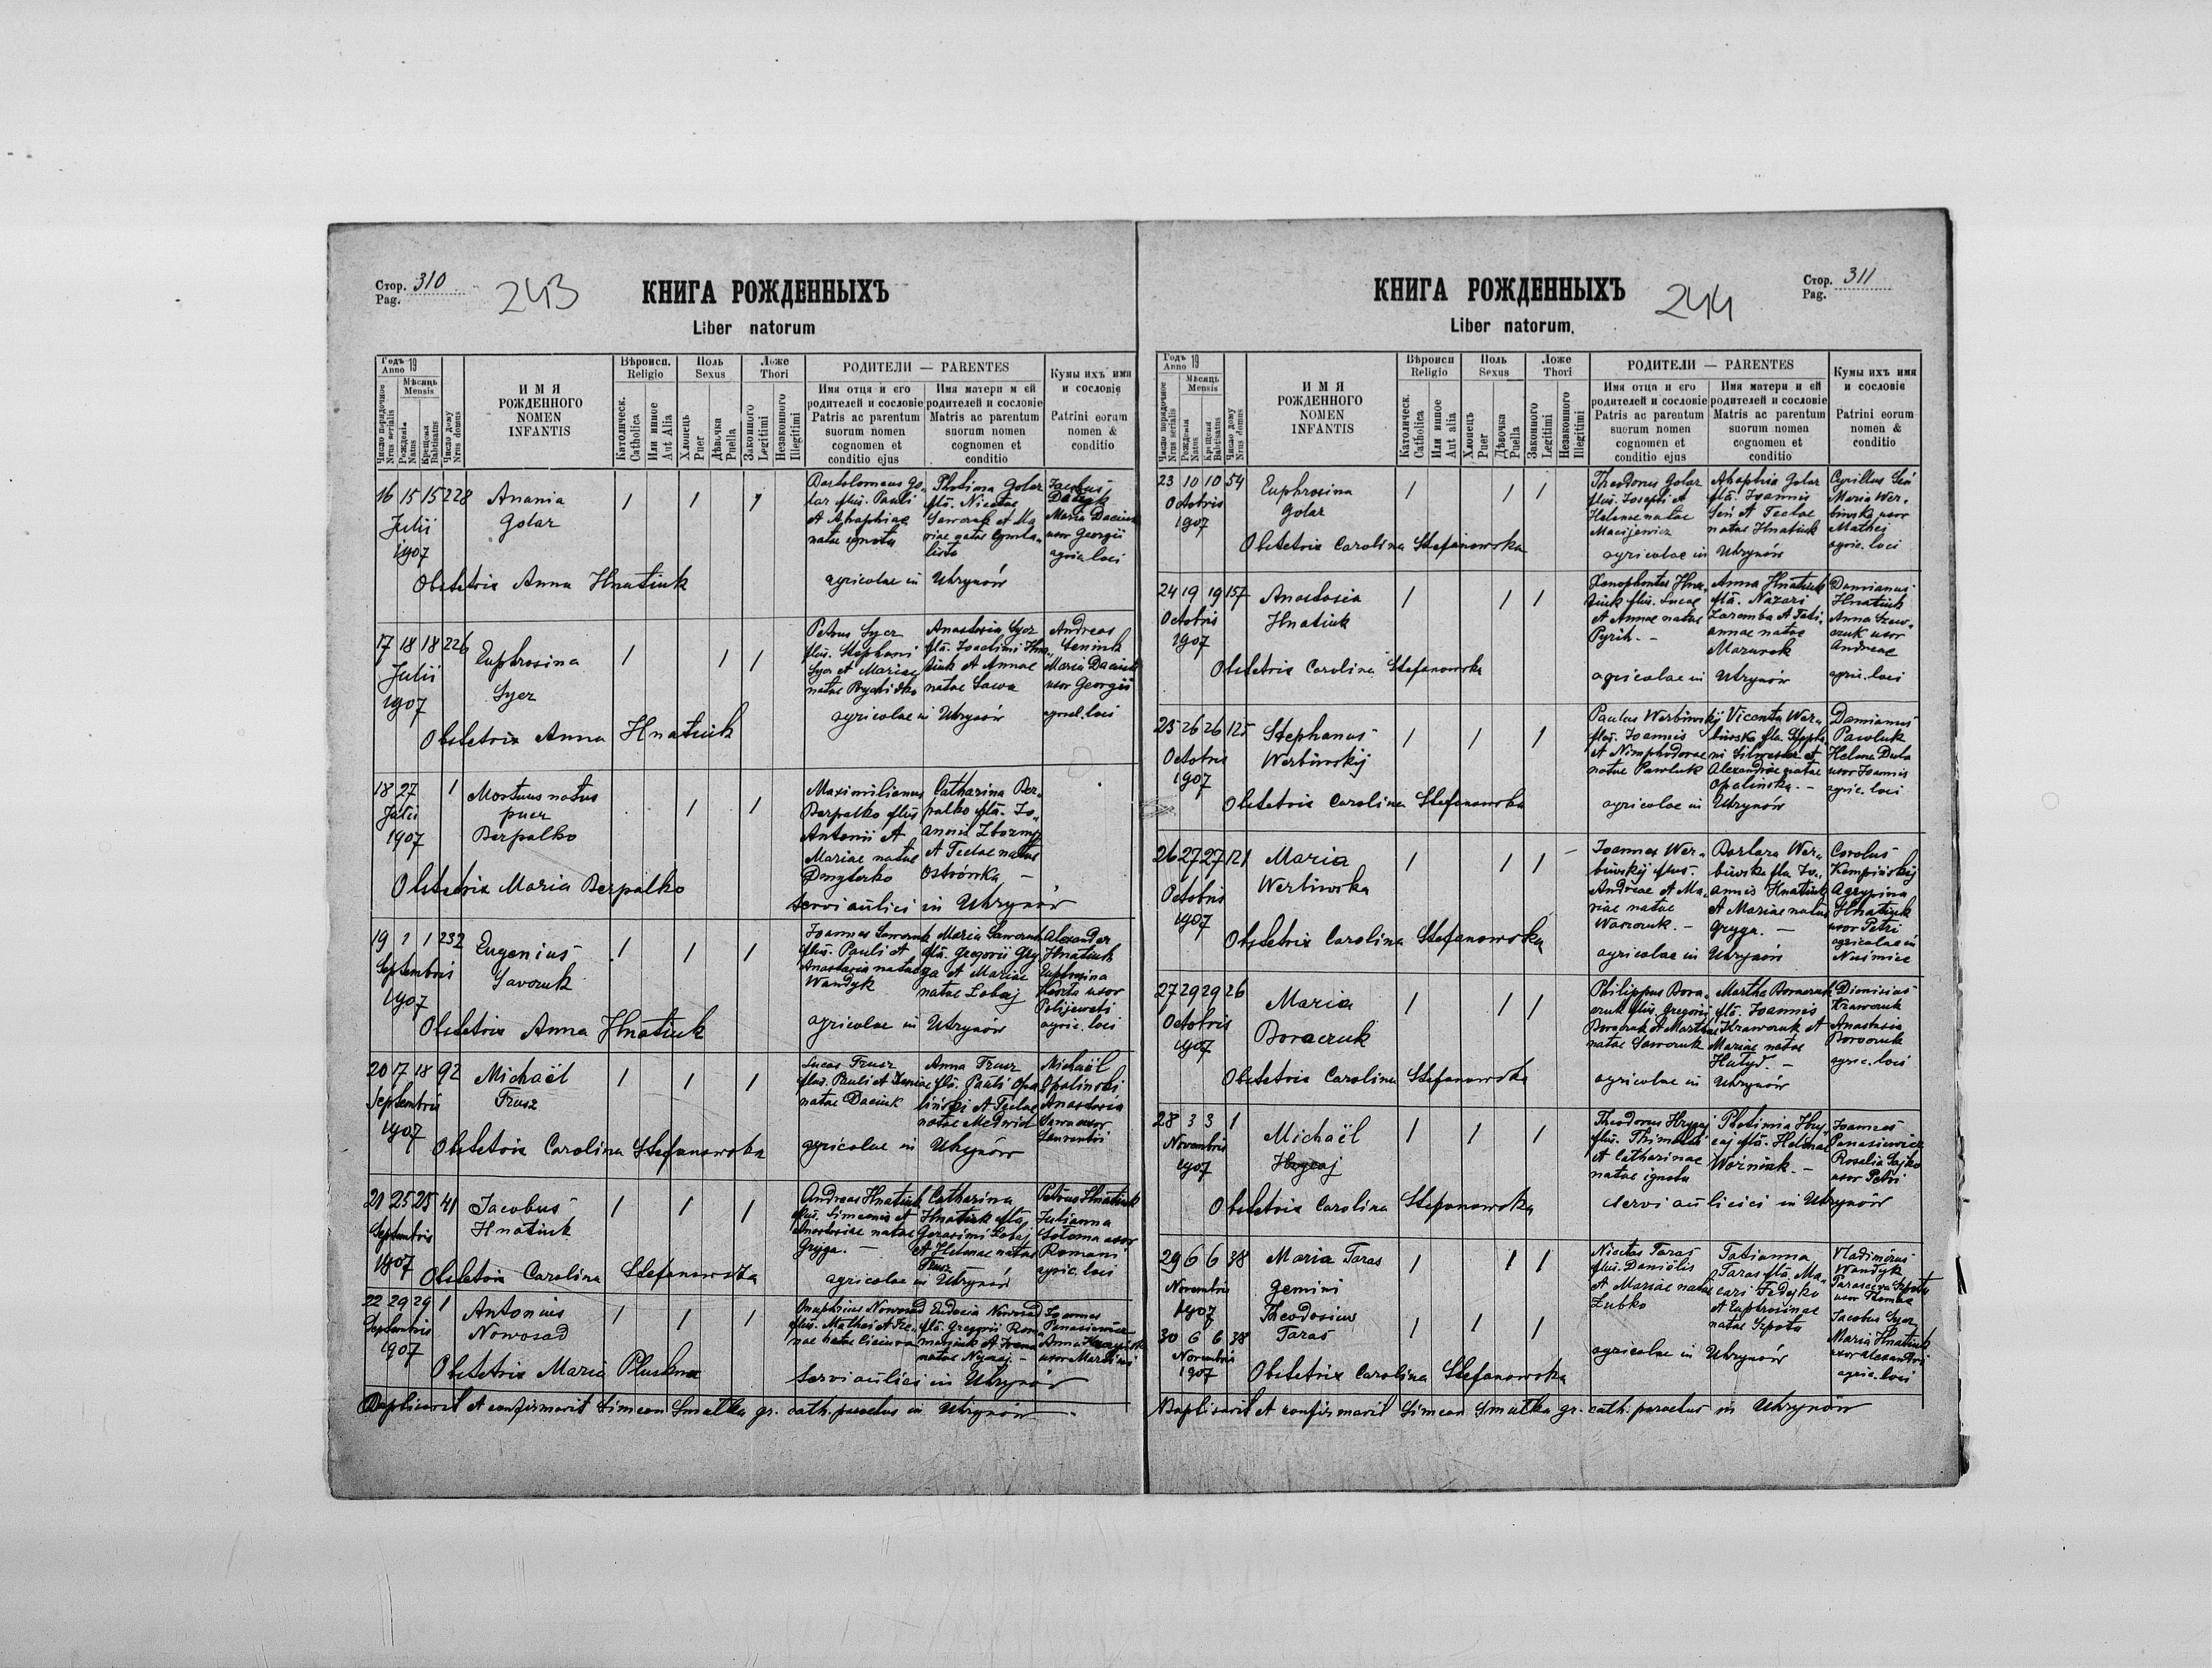 Стор. 310
Pag.
243
КНИГА РОЖДЕННЫХЪ
Liber natorum
Годъ 19
Anno
Мѣсяць
Mensis
Число порядочное
Nrus serialis
Рожденія
Natus
Крещенія
Babtisatus
Число дому
Nrus domus
ИМЯ
РОЖДЕННОГО
NOMEN
INFANTIS
Вѣроисп.
Religio
Католическ.
Catholica
Или инное
Aut Alia
Поль
Sexus
Хлопець
Puer
Дѣвочка
Puella
Ложе
Thori
Законного
Legitimi
Незаконного
Illegitimi
РОДИТЕЛИ — PARENTES
Имя отца и его
родителей и сословіе
Patris ac parentum
suorum nomen
cognomen et
conditio ejus
Имя матери и ей
родителей и сословіе
Matris ac parentum
suorum nomen
cognomen et
conditio
Кумы ихъ имя
и сословіе
Patrini eorum
nomen &
conditio
16 15 15 228
Julii
1907
Anania
Golar
Bartolomaeus Go-
lar flius. Pauli
et Ahaphiae
natae ignota
Photima Golar
flia. Nicetae
Jacobus
Maria Daciuk
uxor Georgii
agric. loci
Obstetrix Anna Hnatiuk
agricolae in Uhrynów
17 18 18 226
Julii
1907
Euphrosina
Syez
Petrus Syez
flius. Stephani
Syez et Mariae
natae
Anastasia Syez
flia. Joachimi Hna-
tiuk et Annae
natae Sawa
Andreas
Seniuk
Maria Daciuk
uxor Georgii
agricol. loci
agricolae in Uhrynów
Obstetrix Anna Hnatiuk
18 27 1
Julii
1907
Mortuus natus
puer
Berpalko
Maximilianus
Berpalko flius
Antonii et
Mariae natae
Dmyterko
Catharina Ber-
palko flia. Jo-
annis
et Teclae natae
Ostrówka —
Obstetrix Maria Berpalko
servi aulici in Uhrynów
19 1 1 232
Septembris
1907
Eugenius
Savczuk
Joannes Sawczuk
flius. Pauli et
Anastasia natae
Wandyk
Maria Sawczuk
flia. Gregorii Gry-
ga et Mariae
natae Lobaj
Alexander
Hnatiuk
Euphrosina
uxor
agric. loci
Obstetrix Anna Hnatiuk
agricolae in Uhrynów
20 17 18 92
Septembris
1907
Michaël
Frusz
Lucas Frusz
flius. Pauli et Xeniae
natae Daciuk
Anna Frusz
flia. Pauli Opa-
liński et Teclae
natae Medwid
Michaël
Opaliński
Anastasia
Sawa uxor
Laurentii
Obstetrix Carolina Stefanowska
agricolae in Uhrynów
21 25 25 41
Septembris
1907
Jacobus
Hnatiuk
Andreas Hnatiuk
flius. Simeonis et
Anastasiae natae
Gryga. —
Catharina
Hnatiuk flia
Gerasimi Lobaj
et Helenae natae
Frusz
Petrus Hnatiuk
Julianna
Sotoma uxor
Romani
agric. loci
Obstetrix Carolina Stefanowska
agricolae in Uhrynów
22 29 29 1
Septembris
1907
Antonius
Nowosad
Onuphrius Nowosad
flius. Mathei et Ire-
nae natae
Eudocia Nowosad
flia. Gregorii Roma-
maniuk et Irena
Joannes
Panasiewicz
Anna
uxor
Obstetrix Maria Pluskwa
servi aulici in Uhrynów
Baptisavit et confirmavit Simeon Smulka gr. cath. parochus in Uhrynów
Стор. 311
Pag.
244
КНИГА РОЖДЕННЫХЪ
Liber natorum.
Годъ 19
Anno
Мѣсяць
Mensis
Число порядочное
Nrus serialis
Рожденія
Natus
Крещенія
Babtisatus
Число дому
Nrus domus
ИМЯ
РОЖДЕННОГО
NOMEN
INFANTIS
Вѣроисп
Religio
Католическ.
Catholica
Или инное
Aut alia
Поль
Sexus
Хлопець
Puer
Дѣвочка
Puella
Ложе
Thori
Законного
Legitimi
Незаконного
Illegitimi
РОДИТЕЛИ — PARENTES
Имя отца и его
родителей и сословіе
Patris ac parentum
suorum nomen
cognomen et
conditio ejus
Имя матери и ей
родителей и сословіе
Matris ac parentum
suorum nomen
cognomen et
conditio
Кумы ихъ имя
и сословіе
Patrini eorum
nomen &
conditio
23 10 10 54
Octobris
1907
Euphrosina
Golar
Theodorus Golar
flius. Josephi et
Helenae natae
Macijewicz
Ahaphia Golar
flia. Joannis
Seń et Teclae
natae Hnatiuk
Cyrillus Seń
Maria Wer-
biwska uxor
Mathei
agric. loci
Obstetrix Carolina Stefanowska
agricolae in Uhrynów
24 19 19 157
Octobris
1907
Anastasia
Hnatiuk
Xenophontus Hna-
tiuk flius. Lucae
et Annae natae
Pyrih. —
Anna Hnatiuk
flia. Nazari
Zaremba et Tati-
annae natae
Mazurek
Damianus
Hnatiuk
Anna Szew-
czuk uxor
Andreae
agric. loci
Obstetrix Carolina Stefanowska
agricolae in Uhrynów
25 26 26 125
Octobris
1907
Stephanus
Werbiwskij
Paulus Werbiwskij
flius. Joannis
et Nimphodorae
natae Pawluk
Vicenta Wer-
biwska flia. Stepha-
ni Silwester et
Alexandrae natae
Opalinska. —
Damianus
Pawluk
Helena Duda
uxor Joannis
agric. loci
Obstetrix Carolina Stefanowska
agricolae in Uhrynów
26 27 27 121
Octobris
1907
Maria
Werbiwska
Joannes Wer-
biwskij flius.
Andreae et Ma-
riae natae
Wawczuk. —
Barbara Wer-
biwska flia. Jo-
annis Hnatiuk
et Mariae natae
Gryga. —
Carolus
Kempińskij
Agrypina
Hnatiuk
uxor Petri
agricolae in
Nusmice
Obstetrix Carolina Stefanowska
agricolae in Uhrynów
27 29 29 26
Octobris
1907
Maria
Boraczuk
Philippus Bora-
czuk flius. Gregorii
Boraczuk et Marthae
natae Sawczuk
Martha Boraczuk
flia. Joannis
Krawczuk et
Mariae natae
Hutyd. —
Dionisius
Krawczuk
Anastasia
Boroczuk
agric. loci
Obstetrix Carolina Stefanowska
agricolae in Uhrynów
28 3 3 1
Novembris
1907
Michaël
Hrycaj
Theodorus Hrycaj
flius. Thimothei
et Catharinae
natae ignota
Photimia Hry-
caj flia. Helenae
Woźniak. —
Joannes
Panasiewicz
Rosalia Sajko
uxor Petri
Obstetrix Carolina Stefanowska
servi aulicici in Uhrynów
29 6 6 38
Novembris
1907
Maria Taras
gemini
Theodosius
Taras
30 6 6 38
Novembris
1907
Nicetas Taras
flius. Daniëlis
et Mariae natae
Zubko
Tatianna
Taras flia. Ma-
cari Fedejko
et Euphrosinae
natae Szpota
Vladimirus
Wandyk
Parasceva Szpota
uxor Thomae
Jacobus Syez
Maria Hnatiuk
uxor Alexandri
agric. loci
Obstetrix Carolina Stefanowska
agricolae in Uhrynów
Baptisavit et confirmavit Simeon Smulka gr. cath. parochus in Uhrynów